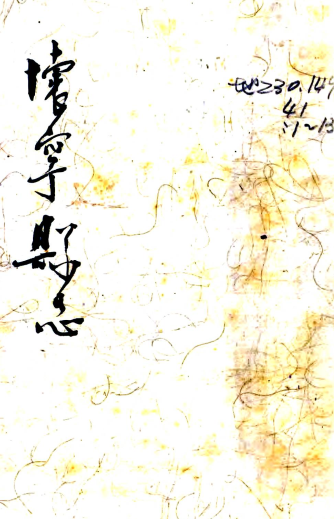 懷寧縣志
地230.149
41
:1~13